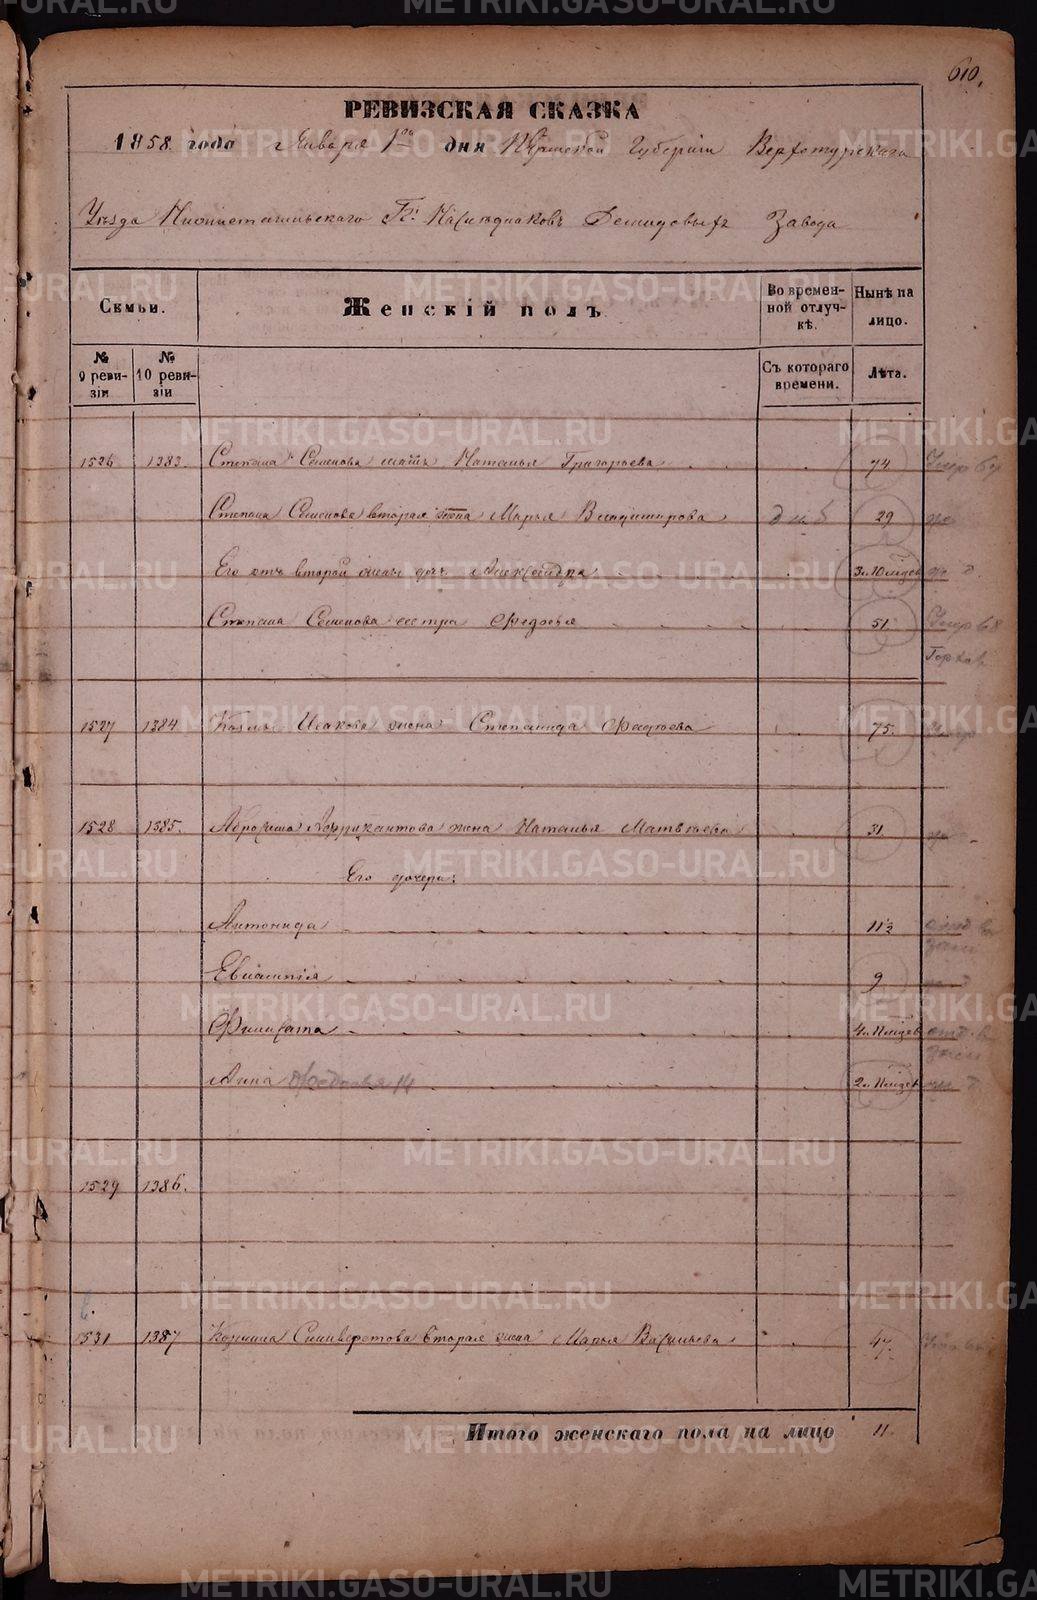 610.
РЕВИЗСКАЯ СКАЗКА
1858 года Января 1го дня Пермской Губерніи Верхотурскаго
Уѣзда Нижнетагильскаго Гг. Наслѣдниковъ Демидовыхъ Завода
Семьи. Женскій полъ. Во временной отлучкѣ. Нынѣ на лицо.
№ 9 ревизіи № 10 ревизіи Съ котораго времени. Лѣта.
1526 1383. Степана Семенова мать Наталья Григорьева 74 Умер
Степана Семенова вторая жена Марья Владимирова 29
Его отъ второй жены дочь Александра 3 л. 10 мѣсев
Степана Семенова сестра Федосья 51 Умер 68
1527 1384. Козмы Исакова жена Степанида Фадѣева 75. Умер
1528 1385. Абросима Африкантова жена Наталья Матвѣева 31
Его дочери:
Антонида 11½
Евлампія 9
Филисата 4 л. 11 мѣсев
Анна Федосья 14 2 л. 11 мѣсев
1529 1386.
1531 1387 Козмы Селиверстова вторая жена Марья Васильева 47.
Итого женскаго пола на лицо 11.
METRIKI.GASO-URAL.RU